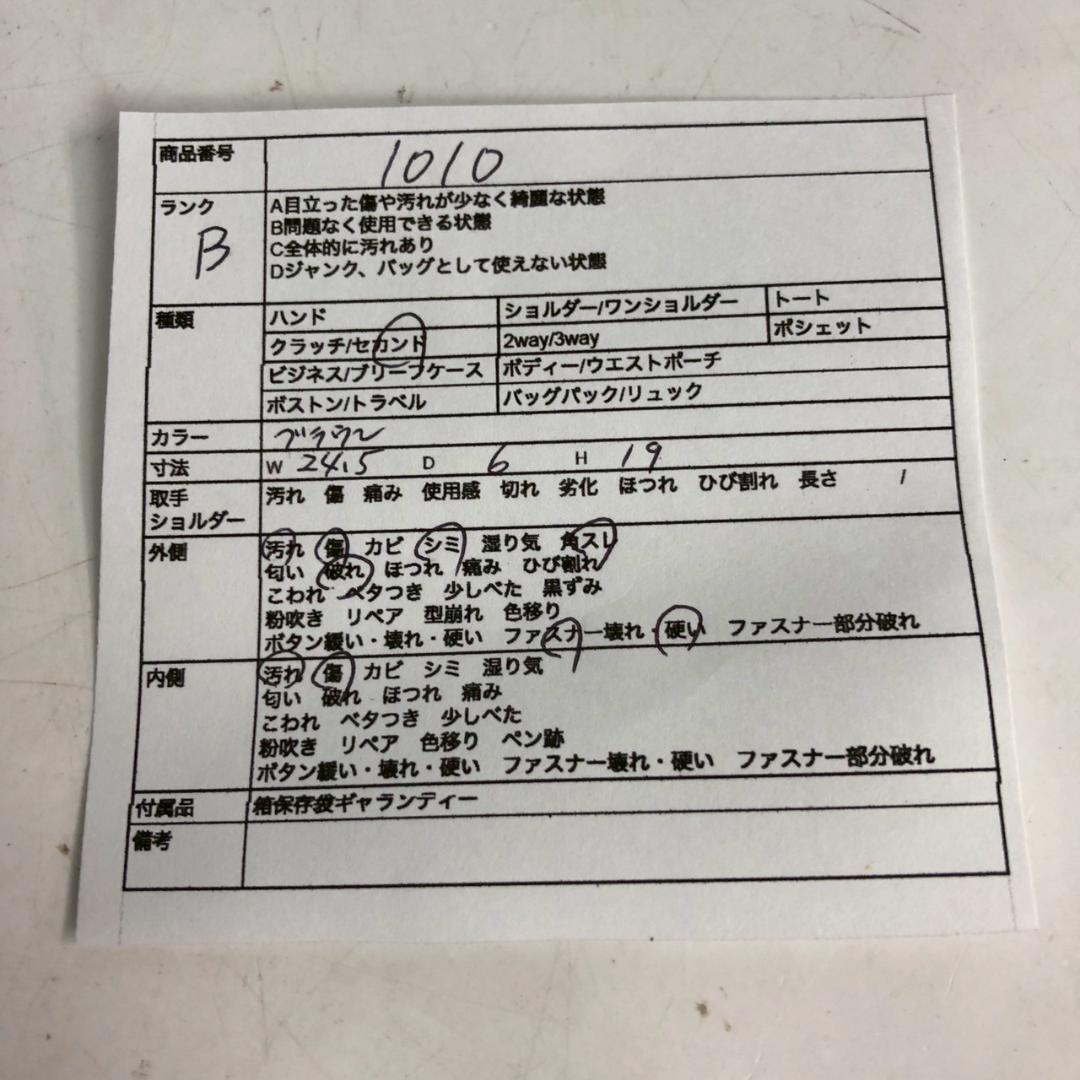 商品番号 1010
ランク B
A目立った傷や汚れが少なく綺麗な状態
B問題なく使用できる状態
C全体的に汚れあり
Dジャンク、バッグとして使えない状態
種類 ハンド ショルダー/ワンショルダー トート
クラッチ/セカンド 2way/3way ポシェット
ビジネス/ブリーフケース ボディー/ウエストポーチ
ボストン/トラベル バッグパック/リュック
カラー ブラウン
寸法 W 24.5 D 6 H 19
取手 汚れ 傷 痛み 使用感 切れ 劣化 ほつれ ひび割れ 長さ /
ショルダー
外側 汚れ 傷 カビ シミ 湿り気 角スレ
匂い 破れ ほつれ 痛み ひび割れ
こわれ ベタつき 少しべた 黒ずみ
粉吹き リペア 型崩れ 色移り
ボタン緩い・壊れ・硬い ファスナー壊れ・硬い ファスナー部分破れ
内側 汚れ 傷 カビ シミ 湿り気
匂い 破れ ほつれ 痛み
こわれ ベタつき 少しべた
粉吹き リペア 色移り ペン跡
ボタン緩い・壊れ・硬い ファスナー壊れ・硬い ファスナー部分破れ
付属品 箱保存袋ギャランティー
備考